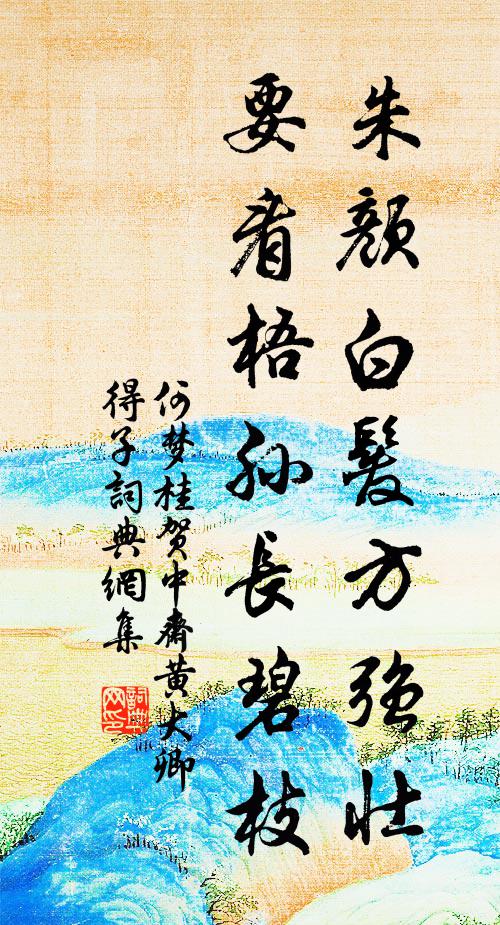 朱顏白髮方強壯
要看梧孫長碧枝
何梦桂贺中齋黄大卿
得子詞典網集